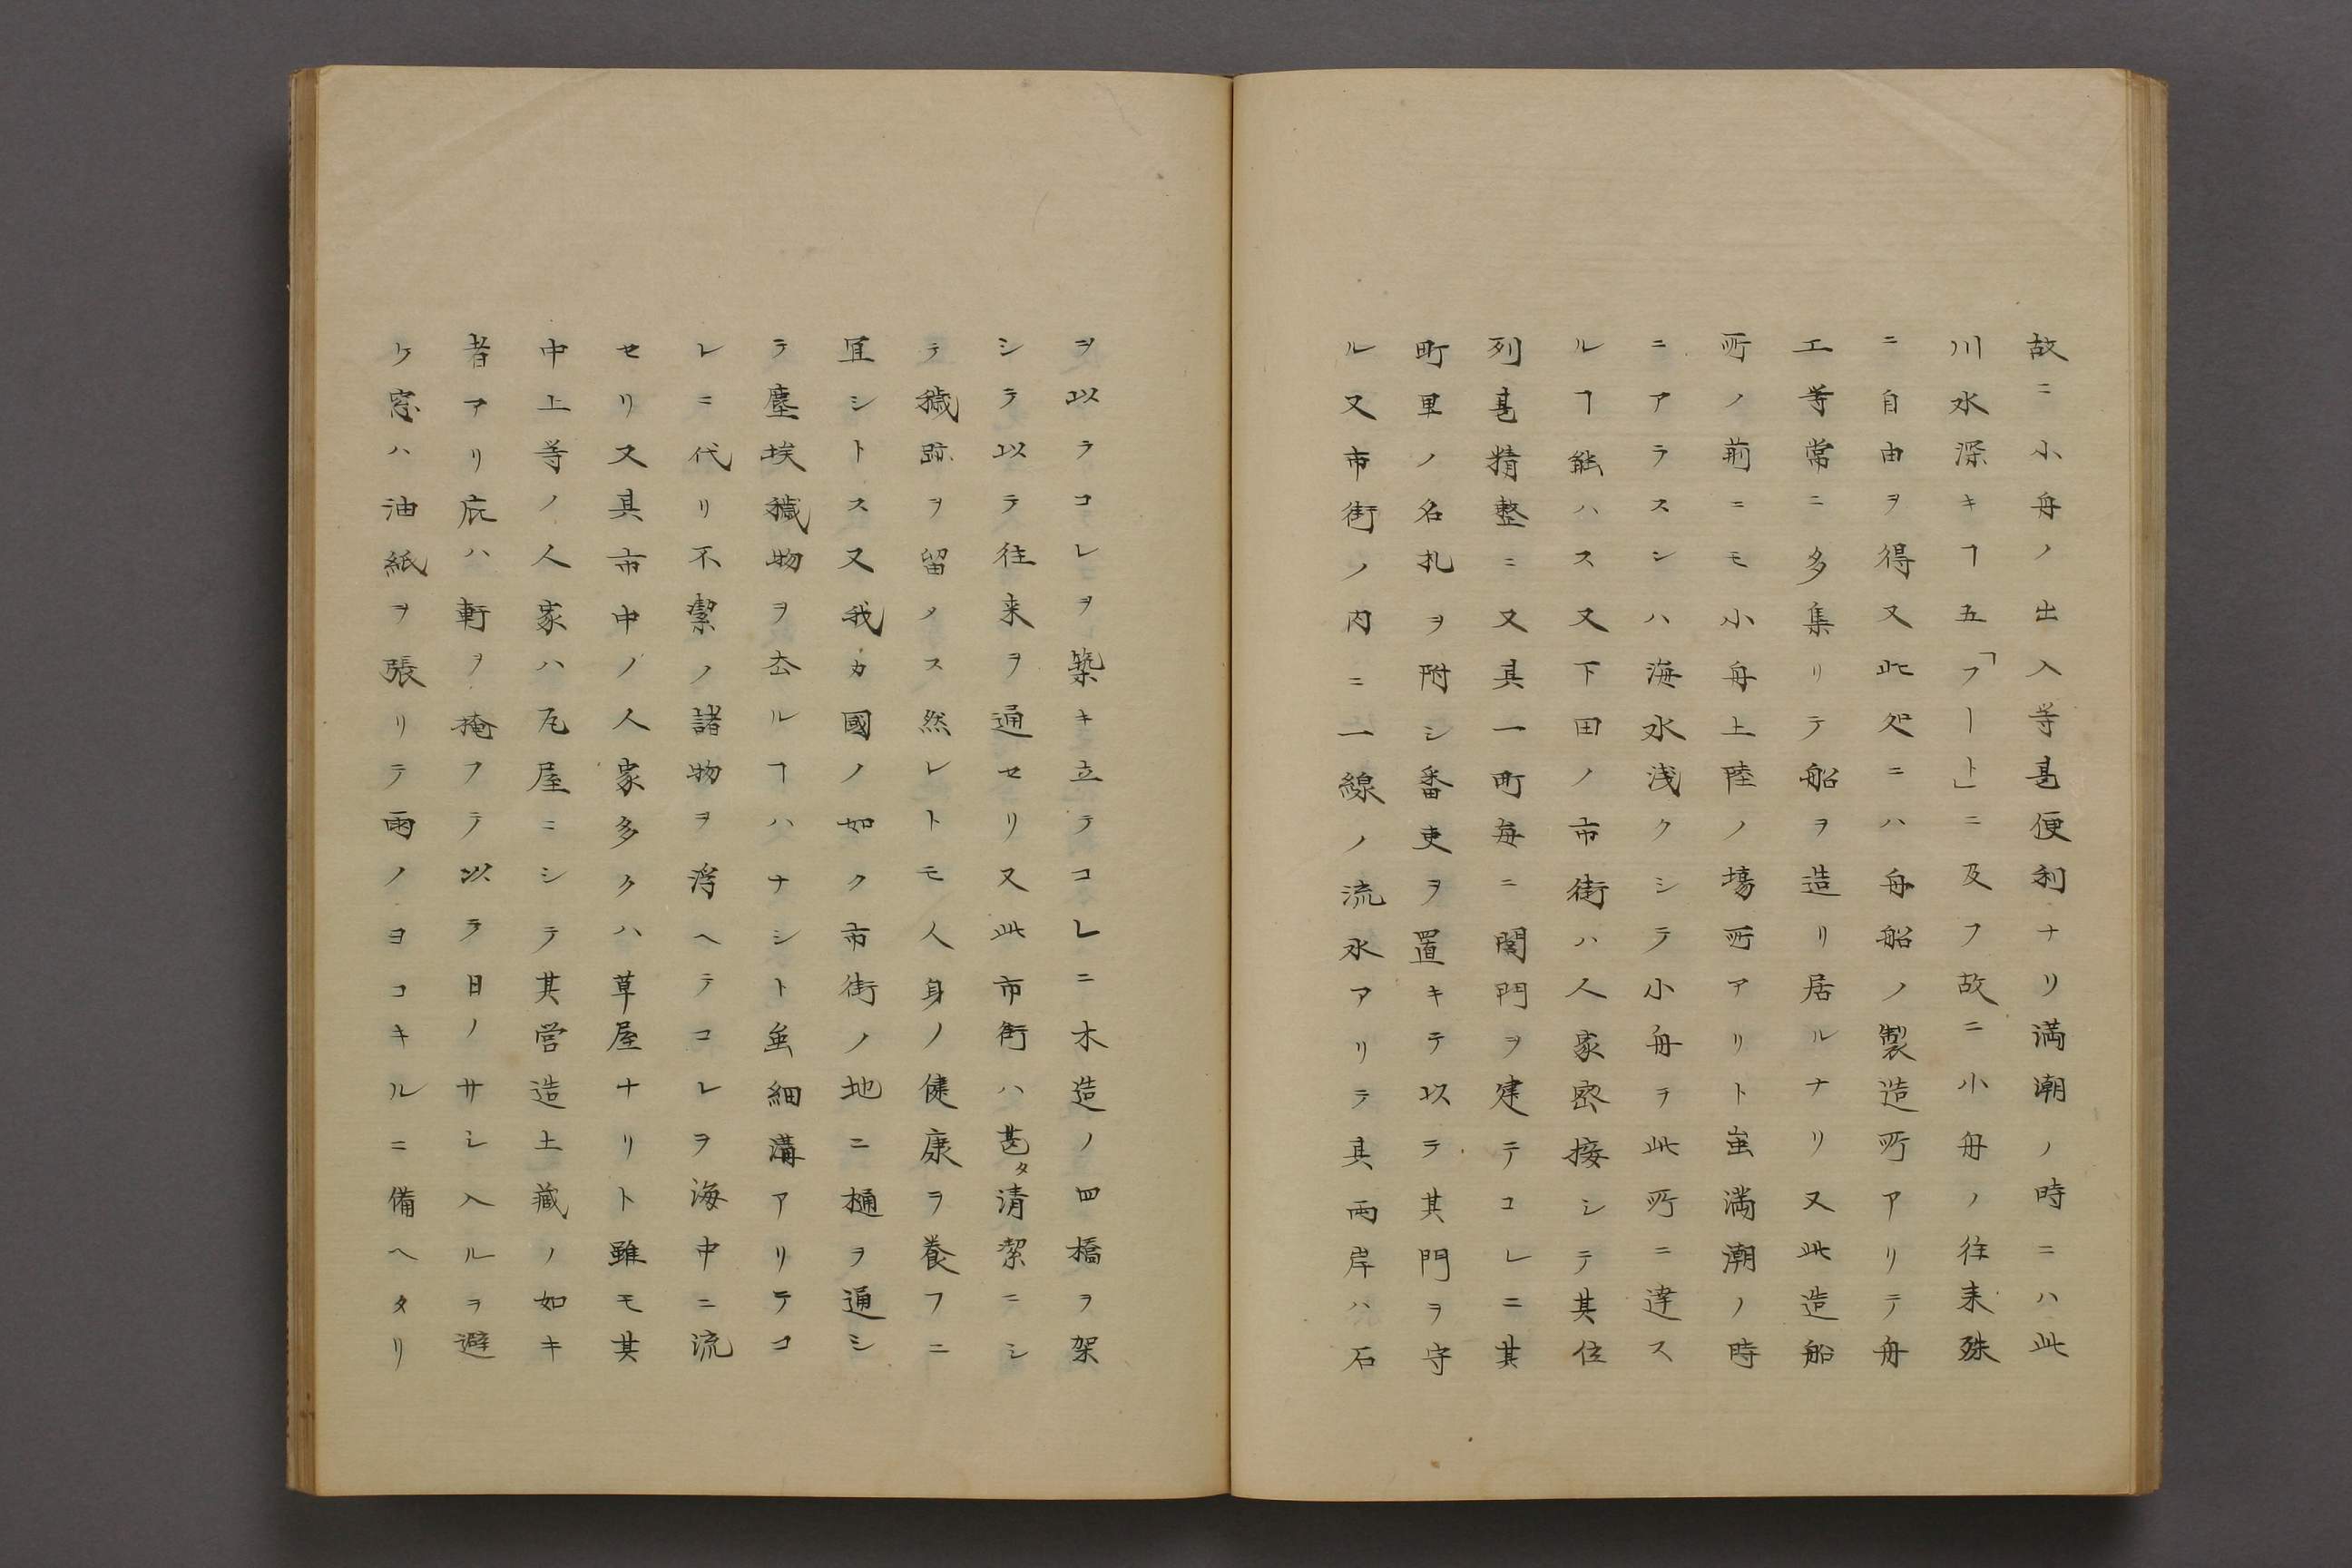 故ニ小舟ノ出入等甚便利ナリ満潮ノ時ニハ此
川水深キヿ五「フート」ニ及フ故ニ小舟ノ往来殊
ニ自由ヲ得又此処ニハ舟船ノ製造所アリテ舟
工等常ニ多集リテ船ヲ造リ居ルナリ又此造船
所ノ前ニモ小舟上陸ノ場所アリト虽満潮ノ時
ニアラスシハ海水浅クシテ小舟ヲ此所ニ達ス
ルヿ能ハス又下田ノ市街ハ人家密接シテ其位
列甚精整ニ又其一町毎ニ関門ヲ建テコレニ其
町里ノ名札ヲ附シ番吏ヲ置キテ以テ其門ヲ守
ル又市街ノ内ニ一線ノ流水アリテ其両岸ハ石
ヲ以テコレヲ築キ立テコレニ木造ノ四橋ヲ架
シテ以テ往来ヲ通セリ又此市街ハ甚タ清潔ニシ
テ穢跡ヲ留ノス然レトモ人身ノ健康ヲ養フニ
宜シトス又我カ國ノ如ク市街ノ地ニ樋ヲ通シ
テ塵埃穢物ヲ去ルヿハナシト虽細溝アリテコ
レニ代リ不潔ノ諸物ヲ浮ヘテコレヲ海中ニ流
セリ又其市中ノ人家多クハ草屋ナリト雖モ其
中上等ノ人家ハ瓦屋ニシテ其営造土蔵ノ如キ
者アリ庇ハ軒ヲ掩フテ以テ日ノサシ入ルヲ避
ケ窓ハ油紙ヲ張リテ雨ノヨコキルニ備ヘタリ